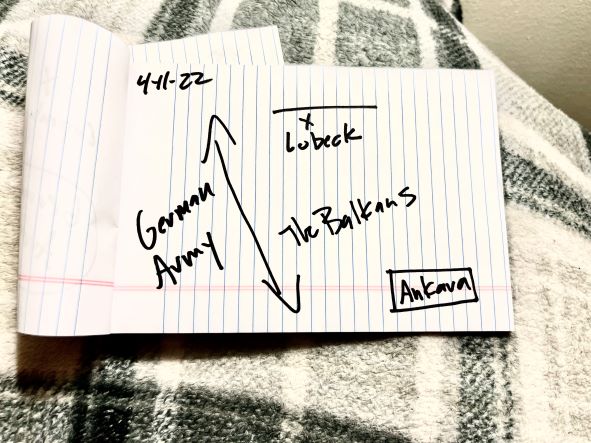 4-11-22
x
Lubeck
German
Army
The Balkans
Ankara